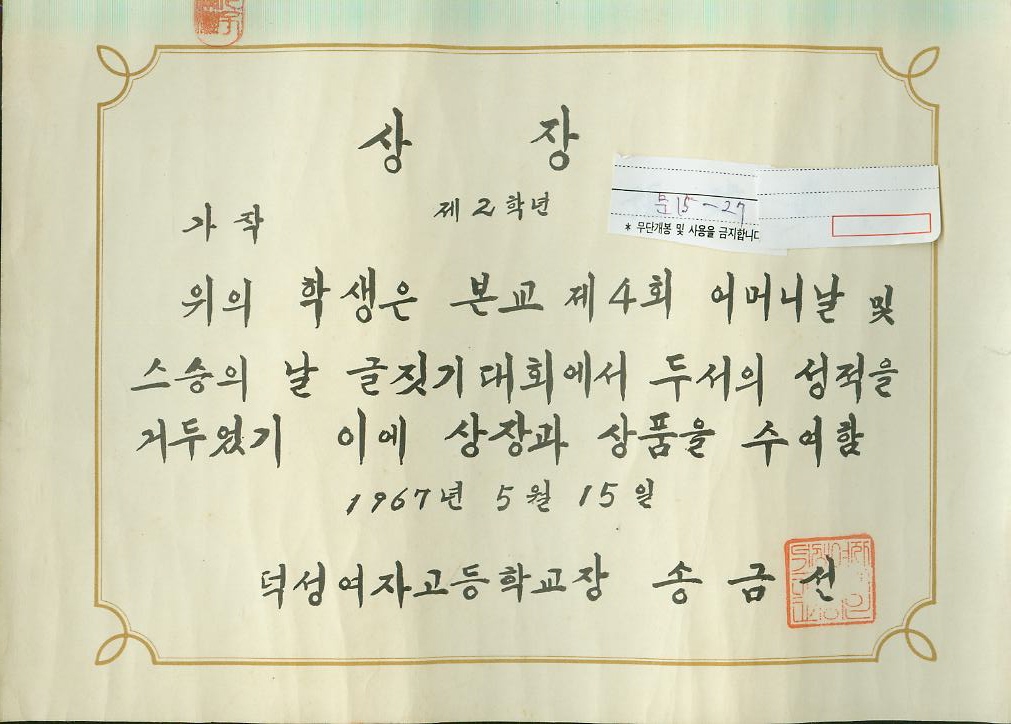 상 장
가작 제2학년
문15-27
* 무단개봉 및 사용을 금지합니다
위의 학생은 본교 제4회 어머니날 및
스승의 날 글짓기대회에서 두서의 성적을
거두었기 이에 상장과 상품을 수여함
1967년 5월 15일
덕성여자고등학교장 송금선